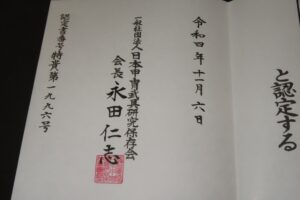 と認定する
令和四年十一月六日
一般社団法人日本甲冑武具研究保存会
会長 永田仁志
認定書番号 特貴第一九九六号